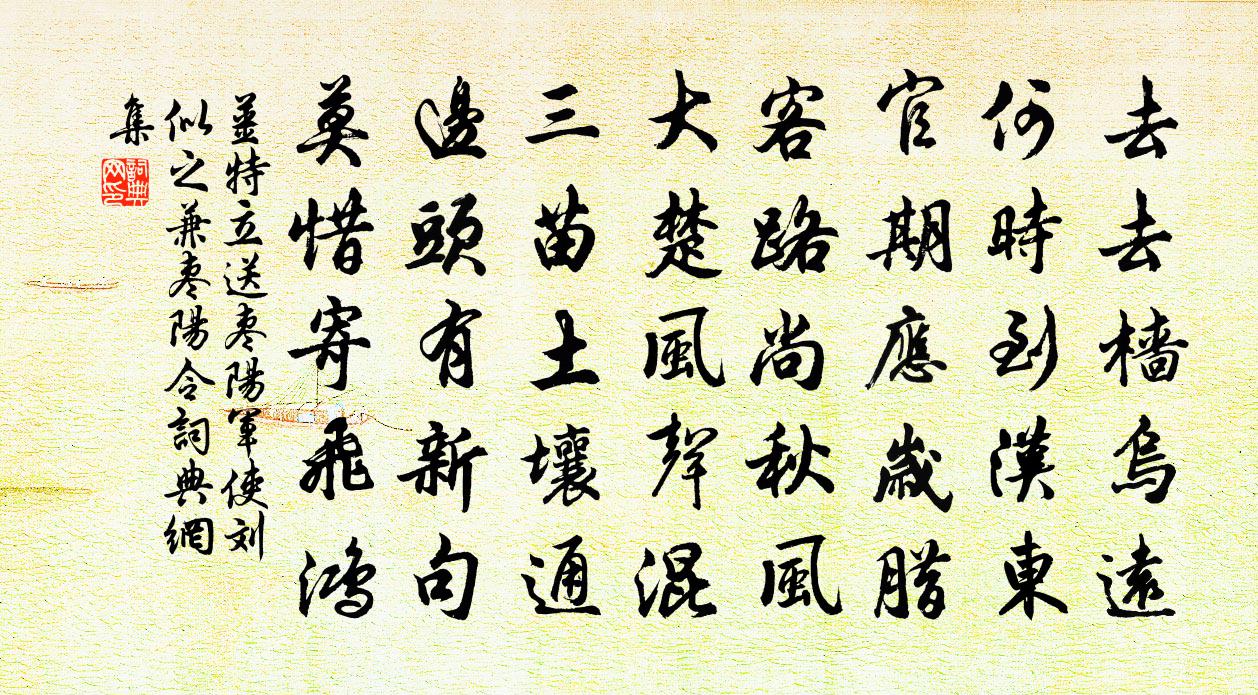 去去檣烏遠
何時到漢東
官期應歲腊
客路尚秋風
大楚風聲混
三苗土壤通
邊頭有新句
莫惜寄飛鴻
姜特立送枣陽軍使刘
似之兼枣陽令詞典網
集
詞典
网印